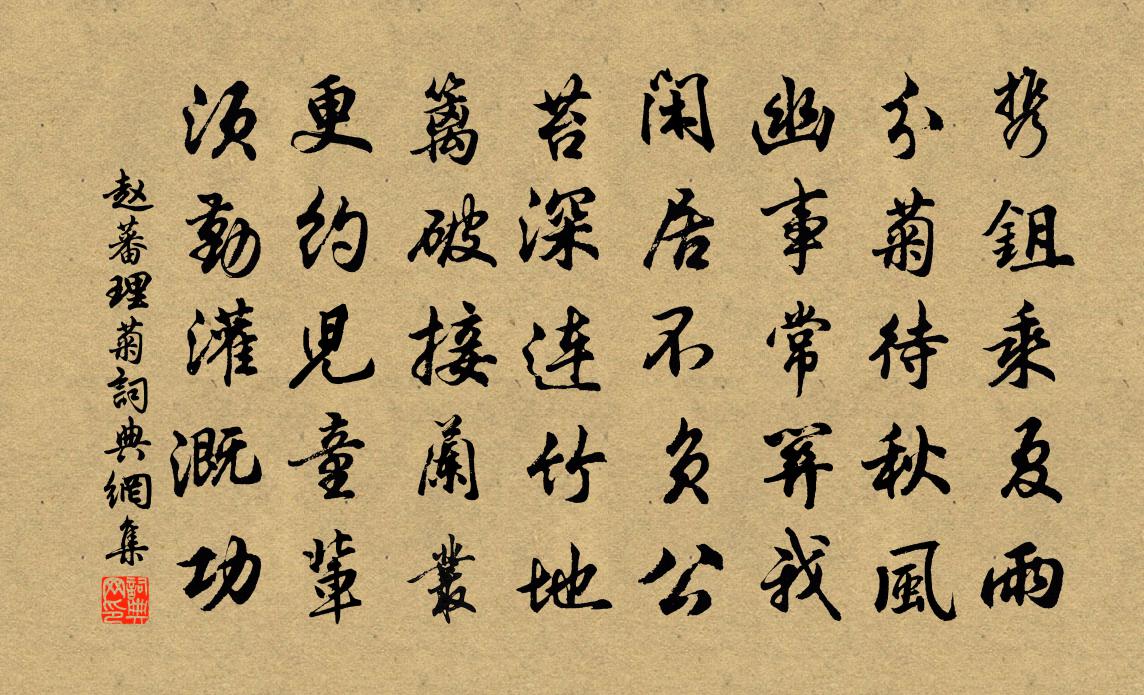 携鉏乘夏雨
分菊待秋風
幽事常關我
閑居不負公
苔深連竹地
籬破接蘭叢
更約兒童輩
須勤灌溉功
赵蕃理菊詞典網集
詞典
网印